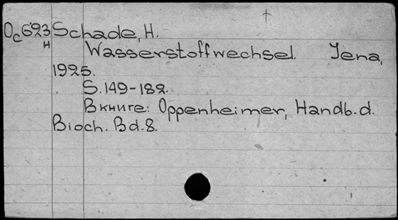 Oc623 Schade, H.
н
Wasserstoffwechsel. Jena,
1925.
S.149-182.
Вкниге: Oppenheimer, Handb.d.
Bioch. Bd.8.